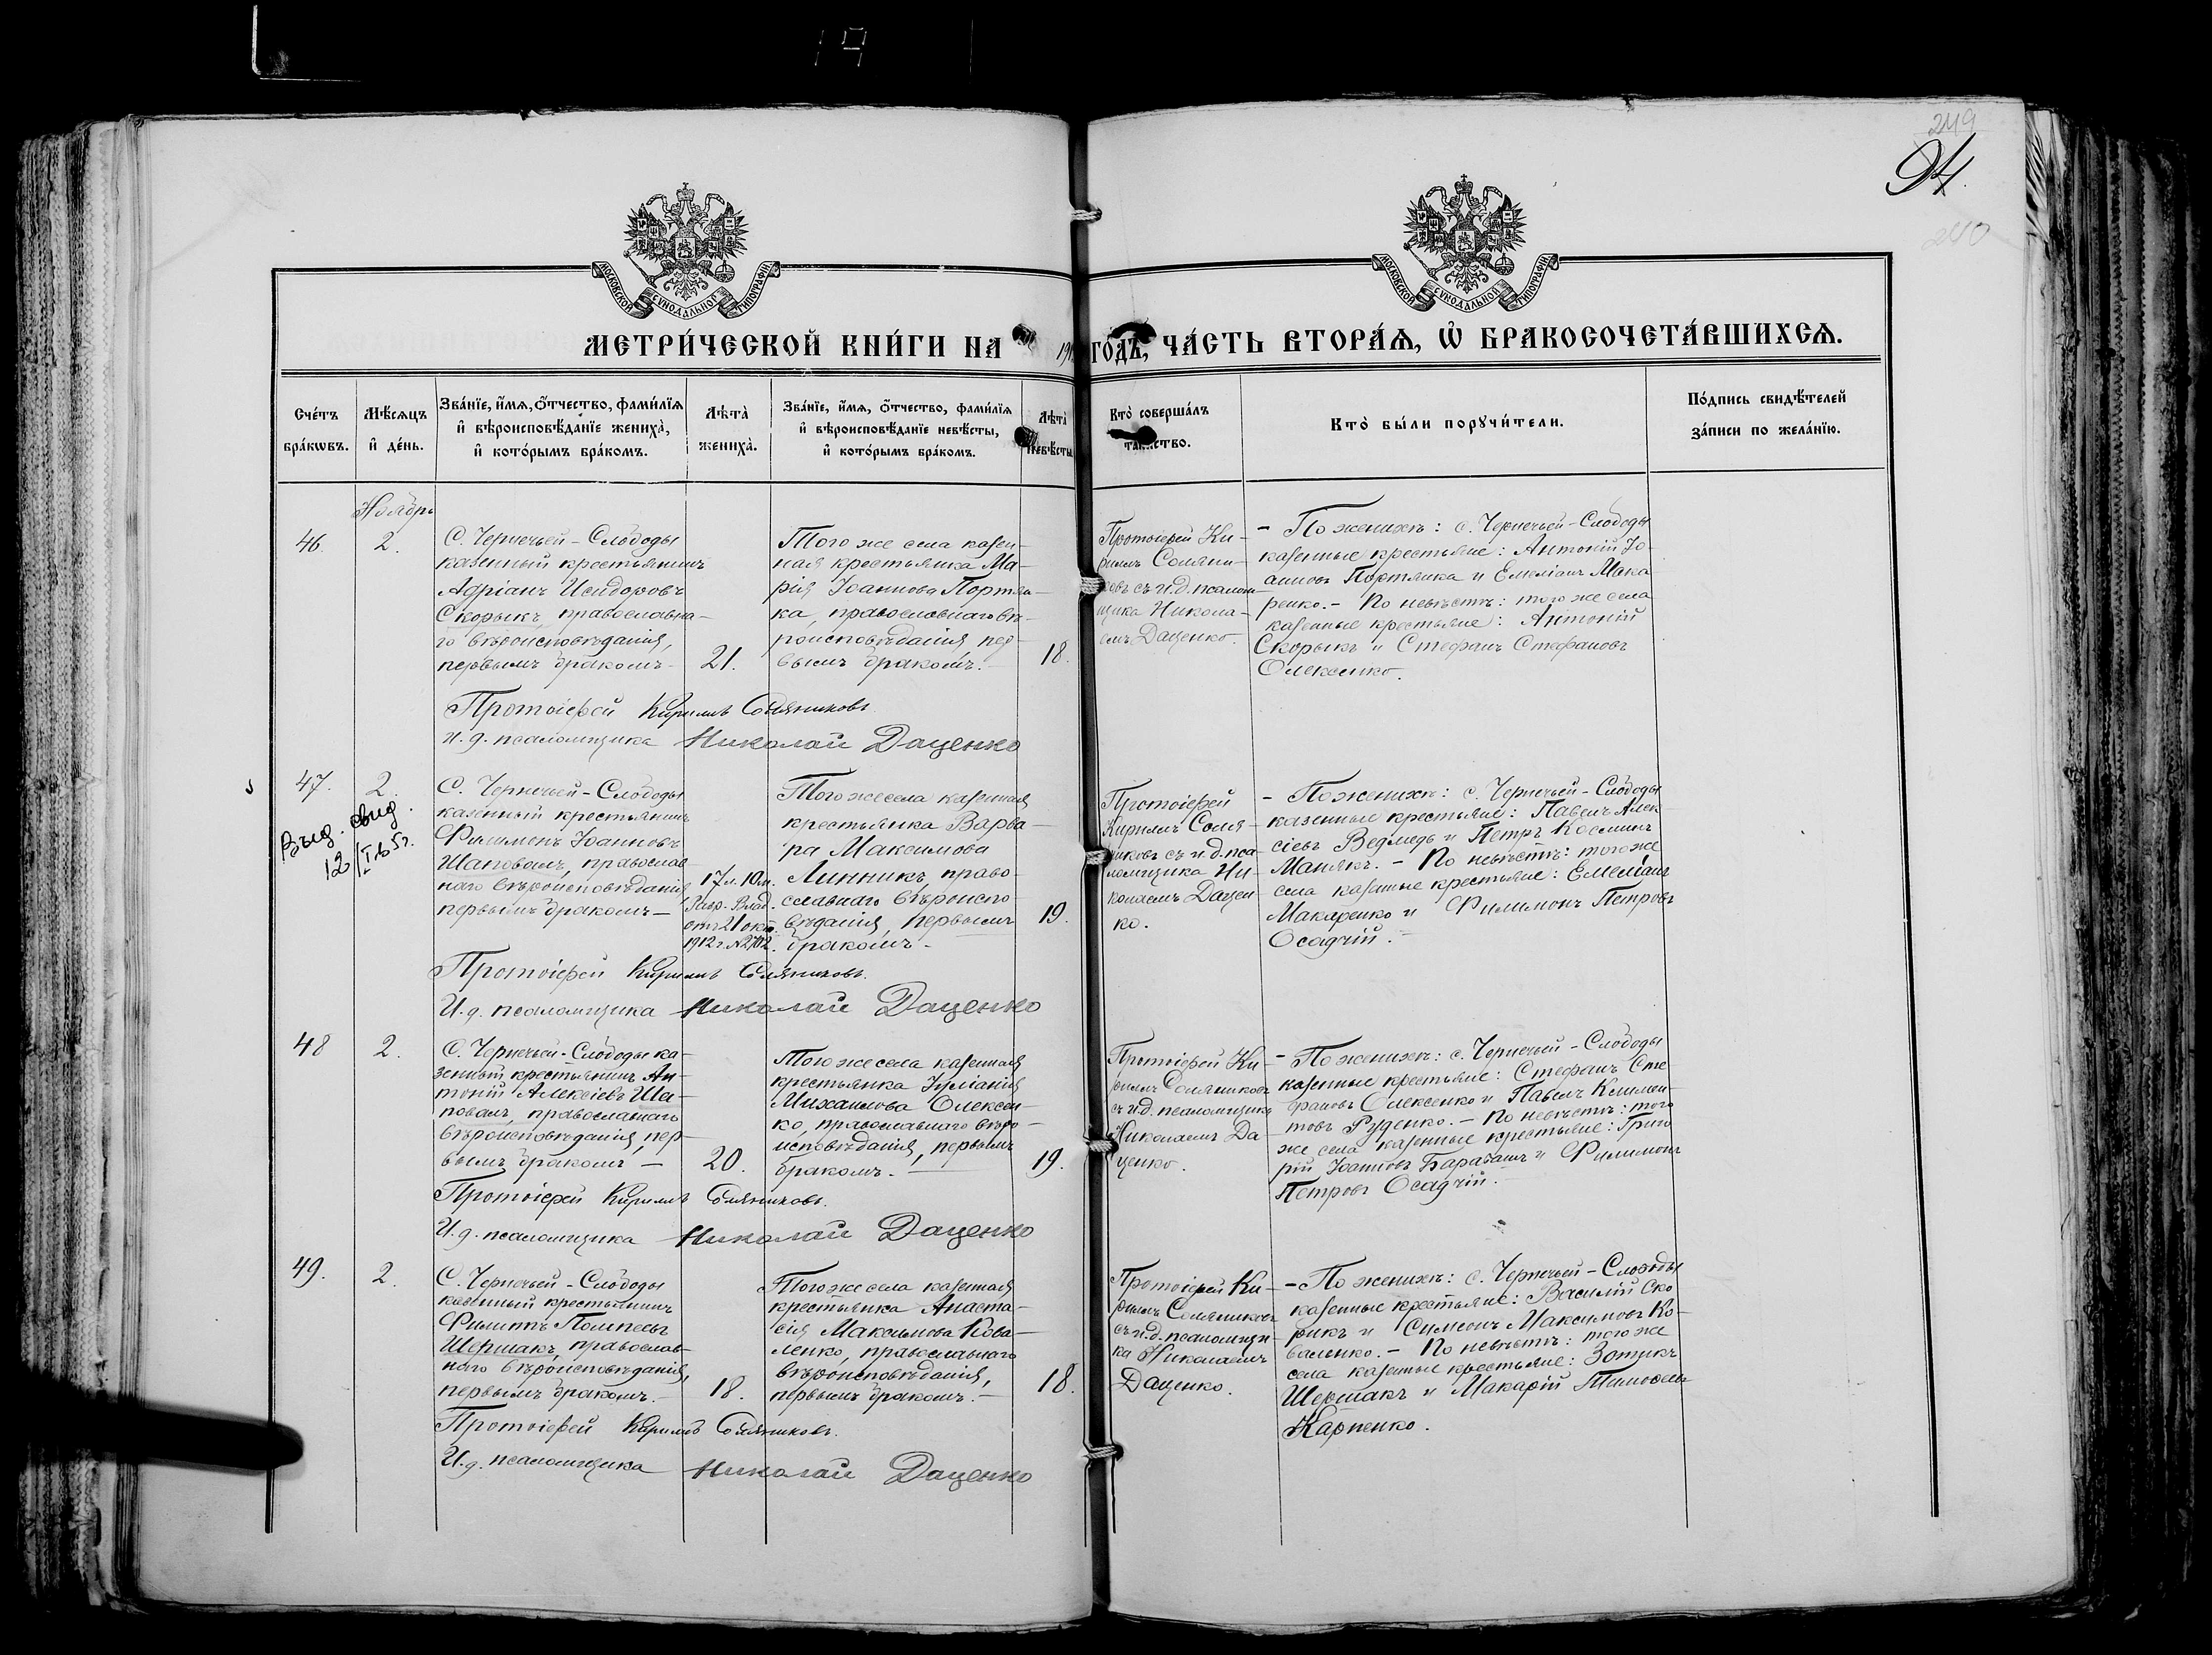 249
94.
240
МОСКОВСКОЙ СѴНОДАЛЬНОЙ ТИПОГРАФІИ
МОСКОВСКОЙ СѴНОДАЛЬНОЙ ТИПОГРАФІИ
МЕТРИ́ЧЕСКОЙ КНИ́ГИ НА ГОДЪ, ЧА́СТЬ ВТОРА́Ѧ, Ѡ҆ БРАКОСОЧЕТА́ВШИХСѦ.
Сче́тъ
бра́кѡвъ.
Мѣ́сяцъ
и҆ де́нь.
Зва́нїе, и҆́мя, ѻ҆́тчество, фами́лїя
и҆ вѣроисповѣ́данїе жениха̀,
и҆ кото́рымъ бра́комъ.
Лѣта̀
жениха̀.
Зва́нїе, и҆́мя, ѻ҆́тчество, фами́лїя
и҆ вѣроисповѣ́данїе невѣ́сты,
и҆ кото́рымъ бра́комъ.
Лѣта̀
невѣ́сты
Кто̀ соверша́лъ
таинство.
Кто̀ бы́ли порꙋчи́тели.
По́дпись свидѣ́телей
за́писи по жела́нїю.
Ноябрь
46.
2.
С. Чернечьей-Слободы
казенный крестьянинъ
Адріанъ Исидоровъ
Скорыкъ, православна-
го вѣроисповѣданія,
первымъ бракомъ-
21.
Того же села казен-
ная крестьянка Ма-
рія Іоаннова Портян-
ка, православнаго вѣ-
роисповѣданія, пер-
вымъ бракомъ.-
18.
Протоіерей Ки-
риллъ Соляни-
ковъ съ и.д. псалом-
щика Никола-
емъ Даценко.
- По женихѣ: с. Чернечьей-Слободы
казенные крестьяне: Антоній Іо-
анновъ Портянка и Емеліанъ Мака
ренко.- По невѣстѣ: того же села
казенные крестьяне: Антоній
Скорыкъ и Стефанъ Стефановъ
Олексенко.
Протоіерей Кириллъ Соляниковъ
и.д. псаломщика Николай Даценко
47.
2.
Выд. свид.
12/I 25 г.
С. Чернечьей-Слободы
казенный крестьянинъ
Филимонъ Іоанновъ
Шаповалъ, православ-
наго вѣроисповѣданія,
первымъ бракомъ-
17 л. 10 м.
Разр. Влад.
отъ 21 окт.
1912 г. №2702.
Того же села казенная
крестьянка Варва-
ра Максимова
Линникъ, право-
славнаго вѣроиспо-
вѣданія, первымъ
бракомъ-
19.
Протоіерей
Кириллъ Соля-
никовъ съ и.д. пса-
ломщика Ни-
колаемъ Дацен
ко.
- По женихѣ: с. Чернечьей-Слободы
казенные крестьяне: Павелъ Алек-
сіевъ Ведмедь и Петръ Косминъ
Манякъ.- По невѣстѣ: того же
села казенные крестьяне: Емеліанъ
Макаренко и Филимонъ Петровъ
Осадчій.-
Протоіерей Кириллъ Соляниковъ.
И.д. псаломщика Николай Даценко
48
2.
С. Чернечьей-Слободы ка-
зенный крестьянинъ Ан-
тоній Алексіевъ Ша-
повалъ, православнаго
вѣроисповѣданія, пер-
вымъ бракомъ -
20.
Того же села казенная
крестьянка Іуліанія
Михаилова Олексен-
ко, православнаго вѣро-
исповѣданія, первымъ
бракомъ.-
19.
Протоіерей Ки-
риллъ Соляниковъ
съ и.д. псаломщика
Николаемъ Да-
ценко.
- По женихѣ: с. Чернечьей-Слободы
казенные крестьяне: Стефанъ Сте
фановъ Олексенко и Павелъ Климен-
товъ Руденко.- По невѣстѣ: того
же села казенные крестьяне: Григо
рій Іоанновъ Барабашъ и Филимонъ
Петровъ Осадчій.-
Протоіерей Кириллъ Соляниковъ.
И.д. псаломщика Николай Даценко
49.
2.
С. Чернечьей-Слободы
казенный крестьянинъ
Филиппъ Помпеевъ
Шершакъ, православ-
наго вѣроисповѣданія,
первымъ бракомъ.-
18.
Того же села казенная
крестьянка Анаста-
сія Максимова Кова-
ленко, православнаго
вѣроисповѣданія,
первымъ бракомъ.-
18.
Протоіерей Ки-
риллъ Соляниковъ
съ и.д. псаломщи-
ка Николаемъ
Даценко.
- По женихѣ: с. Чернечьей-Слободы
казенные крестьяне: Василій Ско
рикъ и Симеонъ Максимовъ Ко-
валенко.- По невѣстѣ: того же
села казенные крестьяне: Зотикъ
Шершакъ и Макарій Тимофеевъ
Карпенко.
Протоіерей Кириллъ Соляниковъ.
И.д. псаломщика Николай Даценко